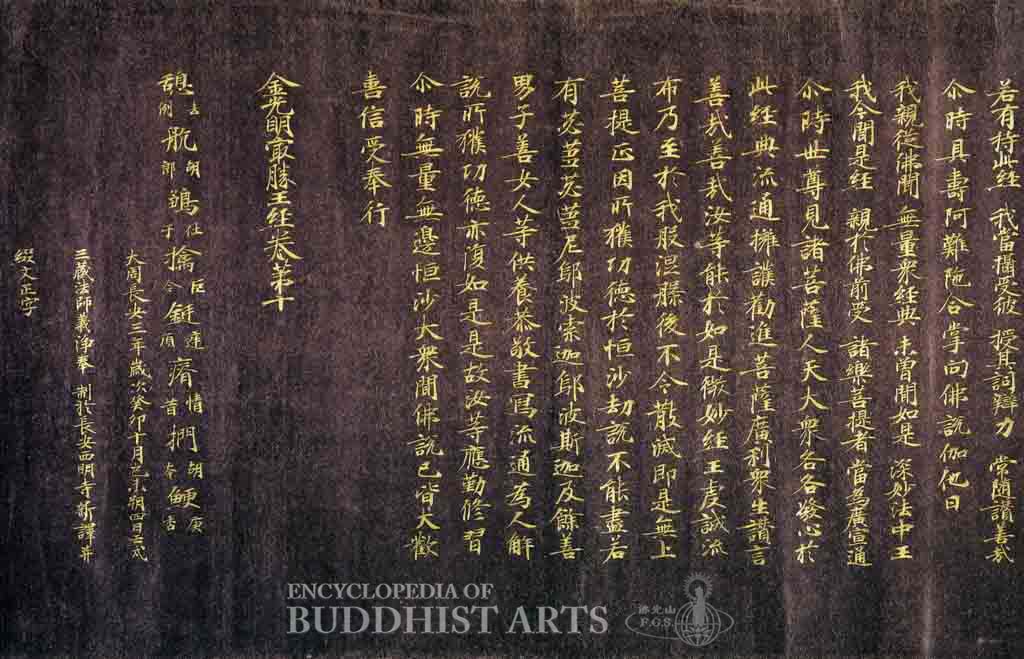 若有持此經 我當攝受彼 授其詞辯力 常隨讚善哉
尒時具壽阿難陁合掌向佛說伽他曰
我親從佛聞 無量衆經典 未曾聞如是 深妙法中王
我今聞是經 親於佛前受 諸樂菩提者 當爲廣宣通
尒時世尊見諸菩薩人天大衆各各發心於
此經典流通擁護勸進菩薩廣利衆生讚言
善哉善哉汝等能於如是微妙經王虔誠流
布乃至於我般涅槃後不令散滅即是無上
菩提正因所獲功德於恒沙劫說不能盡若
有苾蒭苾蒭尼鄔波索迦鄔波斯迦及餘善
男子善女人等供養恭敬書寫流通爲人解
說所獲功德亦復如是是故汝等應勤修習
尒時無量無邊恒沙大衆聞佛說已皆大歡
喜信受奉行
金光明最勝王經卷第十
憩去例 航胡郎 鶵仕于 擒巨今 瘠情昔
大周長安三年歲次癸卯十月己未朔四日壬戌
三藏法師義淨奉 制於長安西明寺新譯并
綴文正字
ENCYCLOPEDIA OF
BUDDHIST ARTS
佛光山
F.G.S.